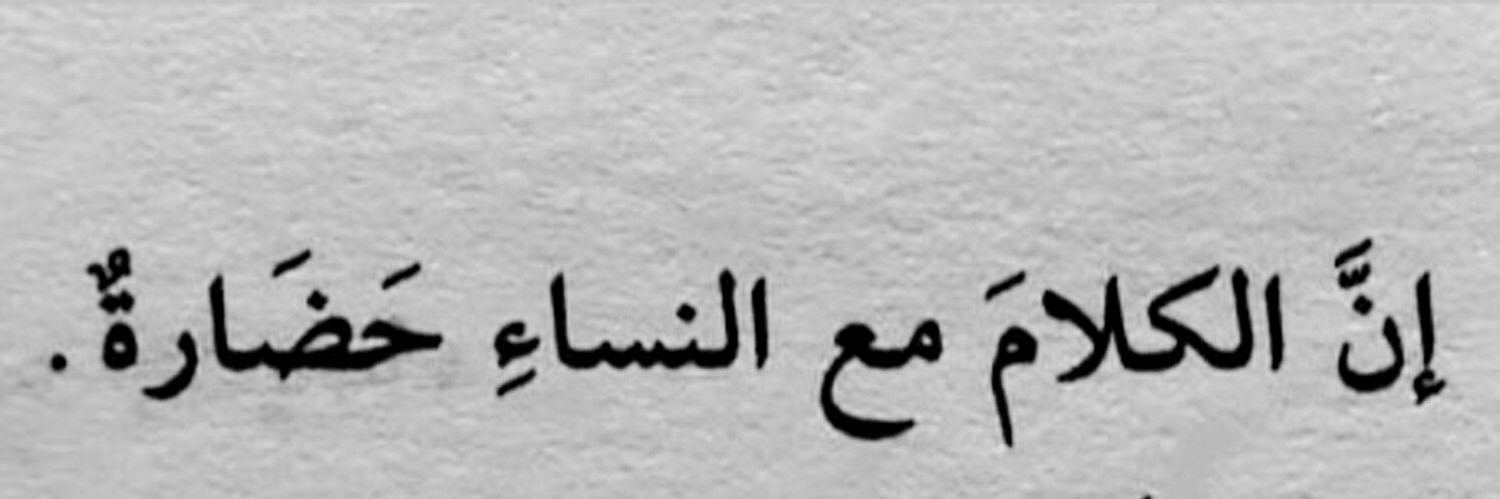 إنَّ الكلامَ مع النساءِ حَضَارةٌ .